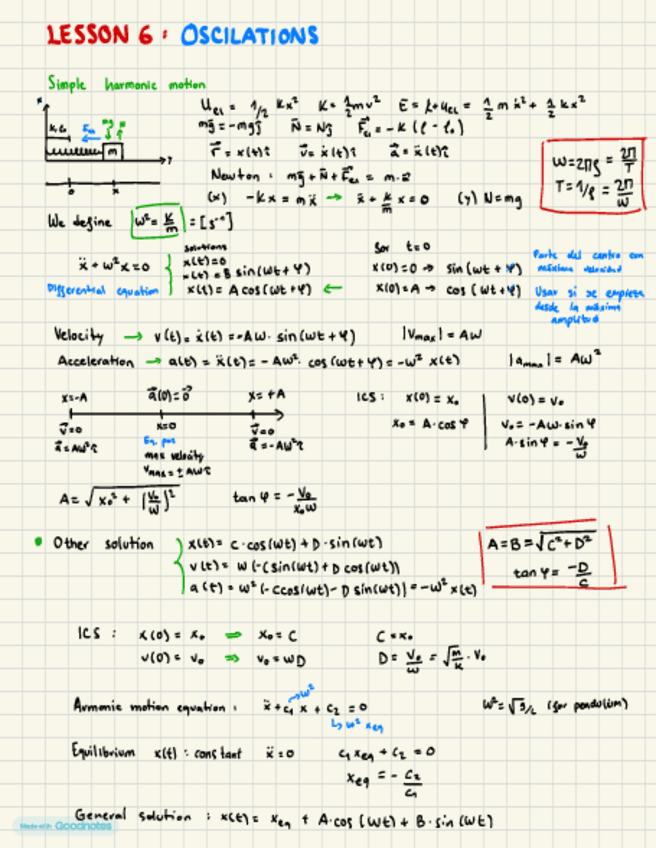 LESSON 6: OSCILATIONS
Simple harmonic motion
U_el = 1/2 Kx² K = 1/2 mv² E = K+U_el = 1/2 m ẋ² + 1/2 Kx²
mg⃗ = -mgĵ N⃗ = Nĵ F⃗_el = -K (l - l₀)
r⃗ = x(t)î v⃗ = ẋ(t)î a⃗ = ẍ(t)î
Newton: mg⃗ + N⃗ + F⃗_el = m·a⃗
(x) -Kx = mẍ → ẍ + K/m x = 0 (y) N = mg
W = 2πf = 2π/T
T = 1/f = 2π/W
m
0 x
We define W² = K/m = [s⁻²]
ẍ + W²x = 0
Differential equation
solutions
x(t) = 0
x(t) = B sin(Wt + φ)
x(t) = A cos(Wt + φ) ←
for t=0
x(0) = 0 → sin(Wt + φ)
x(0) = A → cos(Wt + φ)
Parte del centro con
máxima velocidad
Usar si se empieza
desde la máxima
amplitud
Velocity → v(t) = ẋ(t) = -AW · sin(Wt + φ) |v_max| = AW
Acceleration → a(t) = ẍ(t) = -AW² · cos(Wt + φ) = -W² x(t) |a_max| = AW²
x=-A a⃗(0)=0⃗ x=+A
v⃗=0 x=0 v⃗=0
a⃗=AW²î Eq. pos a⃗=-AW²î
max velocity
v_max = ±AWî
ICS: x(0) = x₀ v(0) = v₀
x₀ = A·cosφ v₀ = -AW·sinφ
A·sinφ = -v₀/W
A = √(x₀² + (v₀/W)²) tanφ = -v₀/(x₀W)
• Other solution
x(t) = C·cos(Wt) + D·sin(Wt)
v(t) = W(-C sin(Wt) + D cos(Wt))
a(t) = W²(-C cos(Wt) - D sin(Wt)) = -W² x(t)
A=B=√(C²+D²)
tanφ = -D/C
ICS: x(0) = x₀ ⇒ x₀ = C C = x₀
v(0) = v₀ ⇒ v₀ = WD D = v₀/W = √(m/K) · v₀
Armonic motion equation: ẍ + c₁ x + c₂ = 0 W² = √g/L (for pendulum)
→ W²
↳ W² x_eq
Equilibrium x(t): constant ẍ=0 c₁x_eq + c₂ = 0
x_eq = - c₂/c₁
General solution: x(t) = x_eq + A·cos(Wt) + B·sin(Wt)
Made with Goodnotes